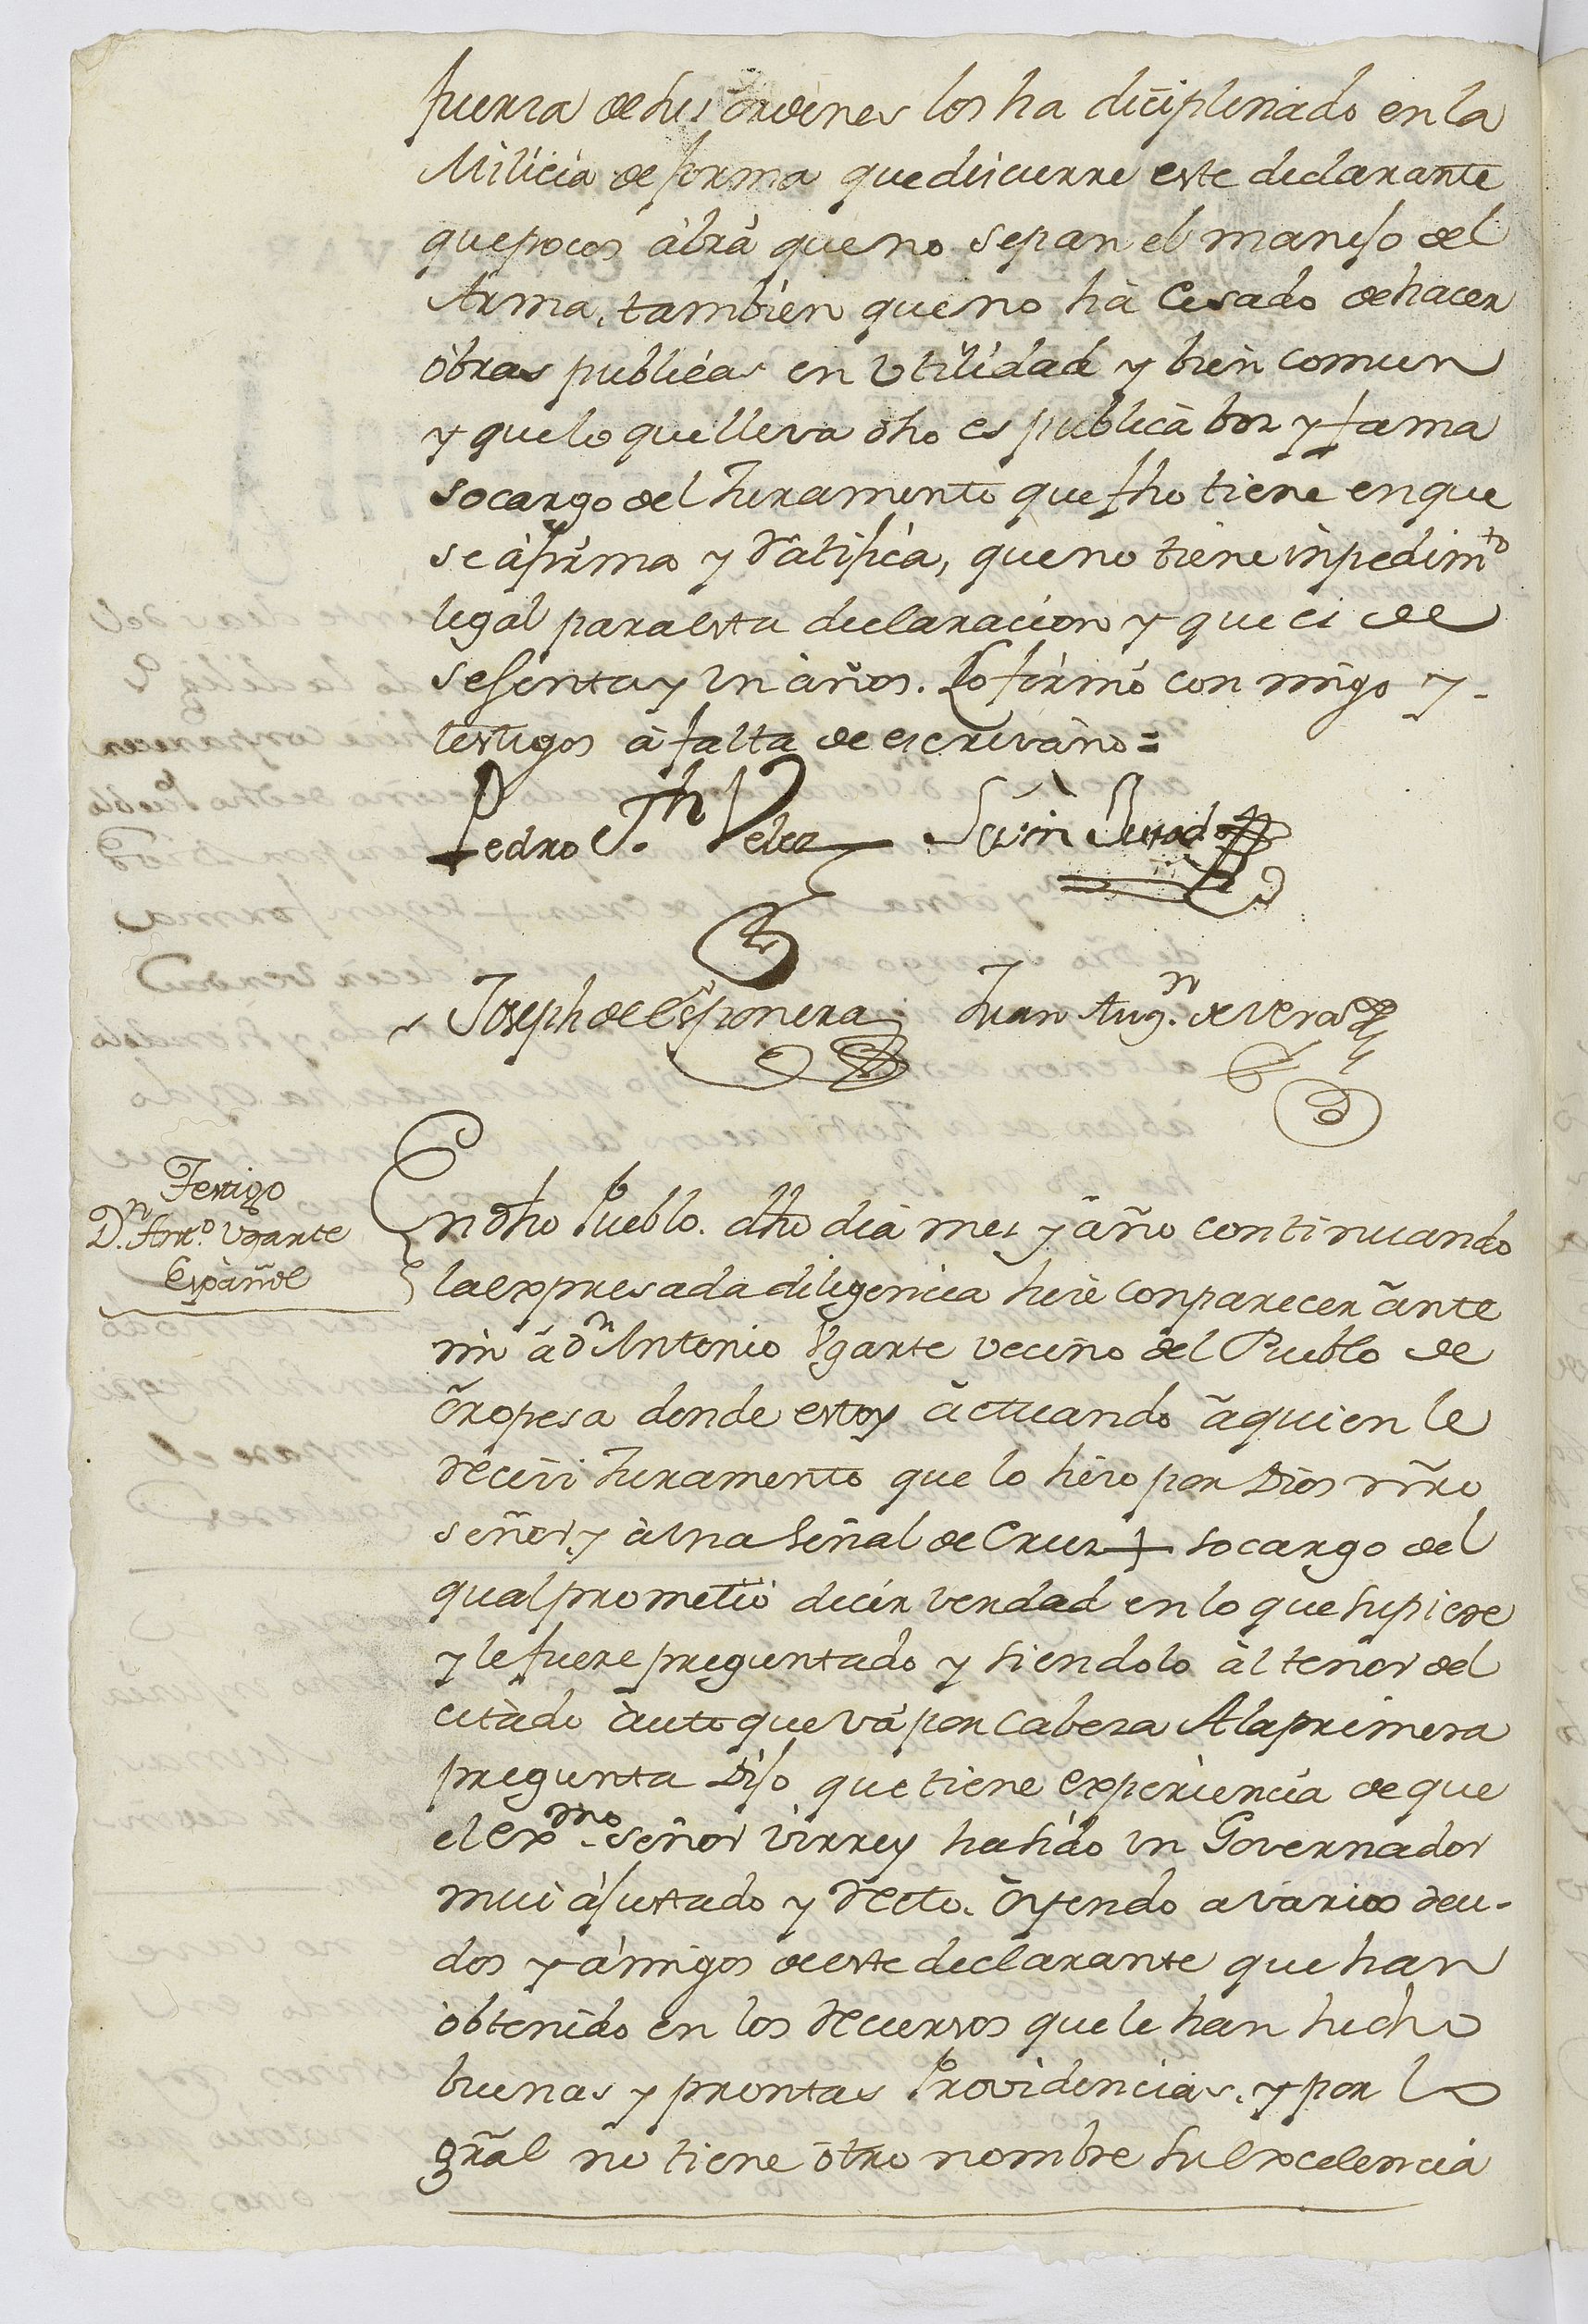 fuerza de sus ordenes los ha diciplinado en la
Milicia de forma que discurre este declarante
que pocos abrá que no sepan el manejo del
Arma, tambien que no ha Cesado de hacer
obras publicas en Utilidad y bien comun
y que lo que lleva dho es publica boz y fama
so cargo del Juramento que fho tiene en que
se afirma y Ratifica, que no tiene inpedimto
legal para esta declaracion y que es de
sesenta y un años. Lo firmó con migo y
testigos a falta de escrivano =
Pedro Jph Velez
Joseph de Esponera Juan Augn. de Vera
Testigo
Dn. Anto. Ugarte
Español
En dho Pueblo. dho dia mes y año continuando
la expresada diligencia hize conparecer ante
mi a dn Antonio Ugarte vecino del Pueblo de
Oropesa donde estoy actuando a quien le
Reciví Juramento que lo hizo por Dios nro
señor, y a una señal de Cruz + so cargo del
qual prometió decir verdad en lo que supiere
y le fuere preguntado y siendolo al tenor del
citado auto que vá por Cabeza A la primera
pregunta Dijo que tiene experiencia de que
el Exmo. señor Virrey ha sido un Governador
mui ajustado y Recto. oyendo a varios deu-
dos y amigos de este declarante que han
obtenido en los Recursos que le han hecho
buenas y prontas Providencias, y por lo
gral no tiene otro nombre su Excelencia